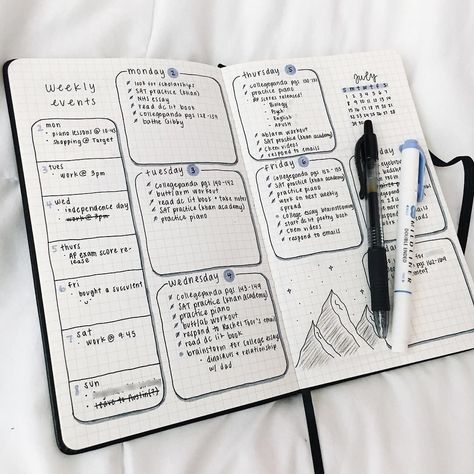 weekly
events
2 mon
• piano lesson @ 10:45
• shopping @ Target
3 tues
• work @ 3pm
4 wed
• independence day
• work @ 3pm
5 thurs
• AP exam score re-
lease
6 fri
• bought a succulent
7 sat
• work @ 9:45
8 sun
monday 2
look for scholarships
SAT practice (khan)
NHS essay
read dc lit book
collegepanda pgs 128-139
bathe Gibby
tuesday 3
collegepanda pgs 140-142
read dc lit book + take notes
SAT practice (khan academy)
practice piano
wednesday 4
collegepanda pgs
SAT practice (khan academy)
practice piano
butt/ab workout
respond to Rachel Toor's email
read dc lit book
brainstorm for college essay
• dinalaus & relationship
w/ dad
thursday 5
collegepanda pgs
practice piano
AP scores released!
• Biology
• Psych
• English
• APUSH
ab/arm workout
SAT practice (khan academy)
chem videos
respond to emails
friday 6
collegepanda pgs
SAT practice (khan academy)
practice piano
work on next weekly
spread
college essay brainstorming
start dc poetry book
chem videos
respond to emails
july
S M T W T F S
1 2 3 4 5 6 7
8 9 10 11 12 13 14
15 16 17 18 19 20 21
22 23 24 25 26 27 28
29 30 31
MIDLINER